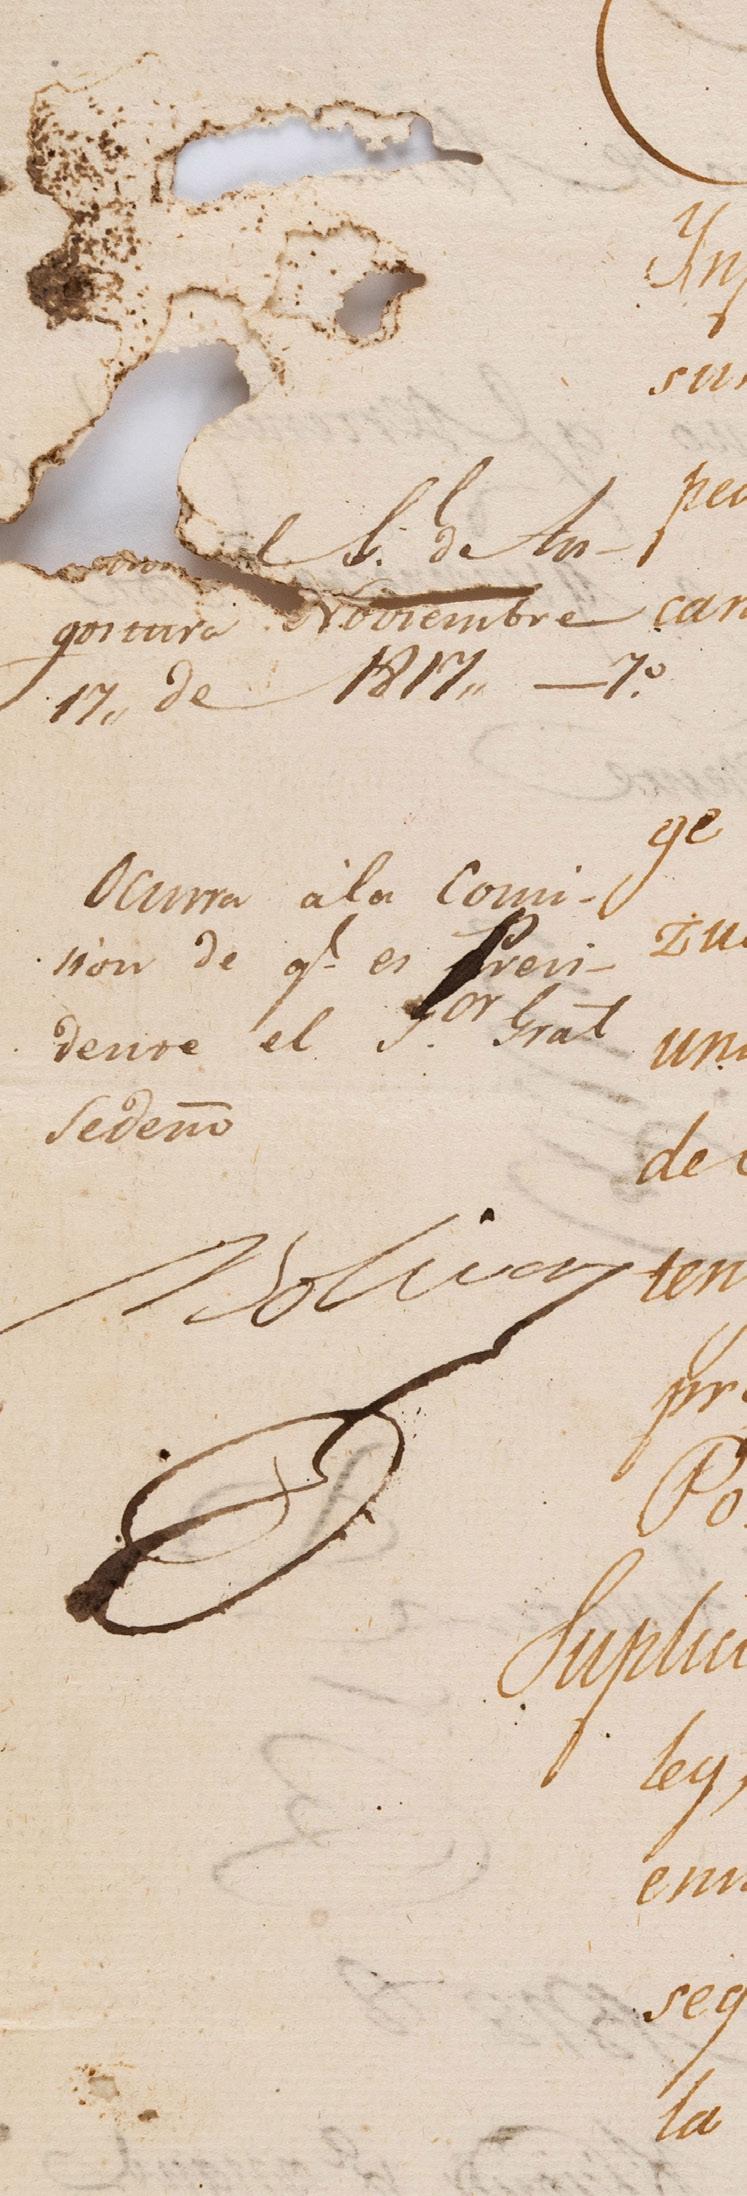 l S. de An-
gostura Noviembre
17,, de 1817,, — 7.º
Ocurra à la Comi-
sion de qᵉ es Presi-
dente el S.ᵒʳ Gral
Sedeño
Bolivar
sur
ped
can
ge
zue
una
de
ten
pr
Po
Suplic
ley,
enn
seg
la